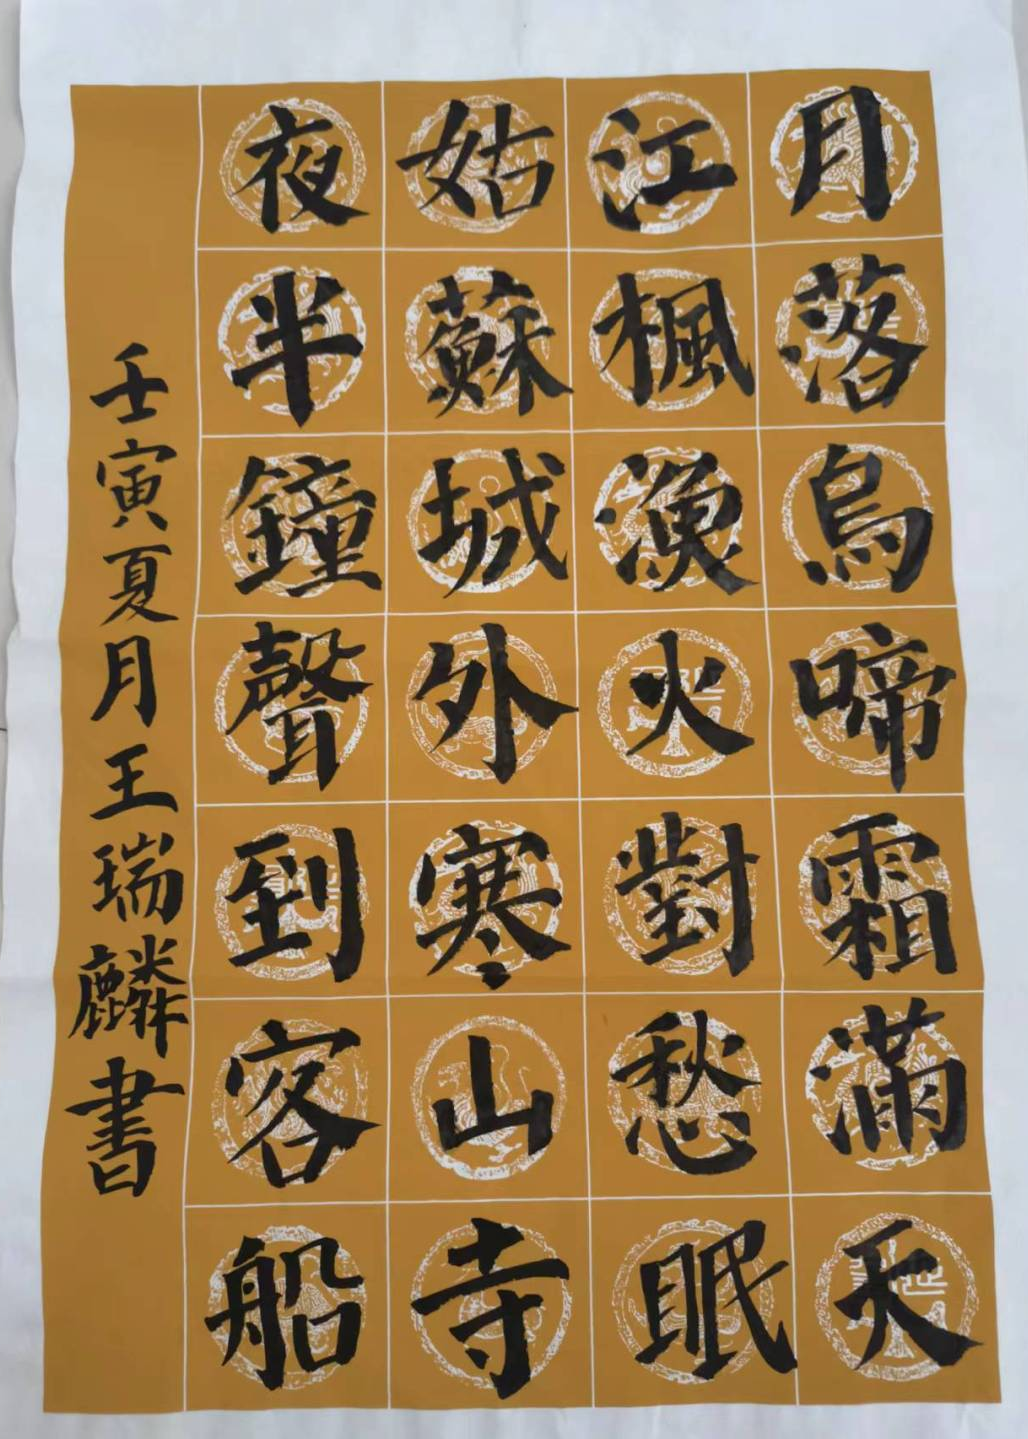 月落烏啼霜滿天
江楓漁火對愁眠
姑蘇城外寒山寺
夜半鐘聲到客船
壬寅夏月王瑞麟書